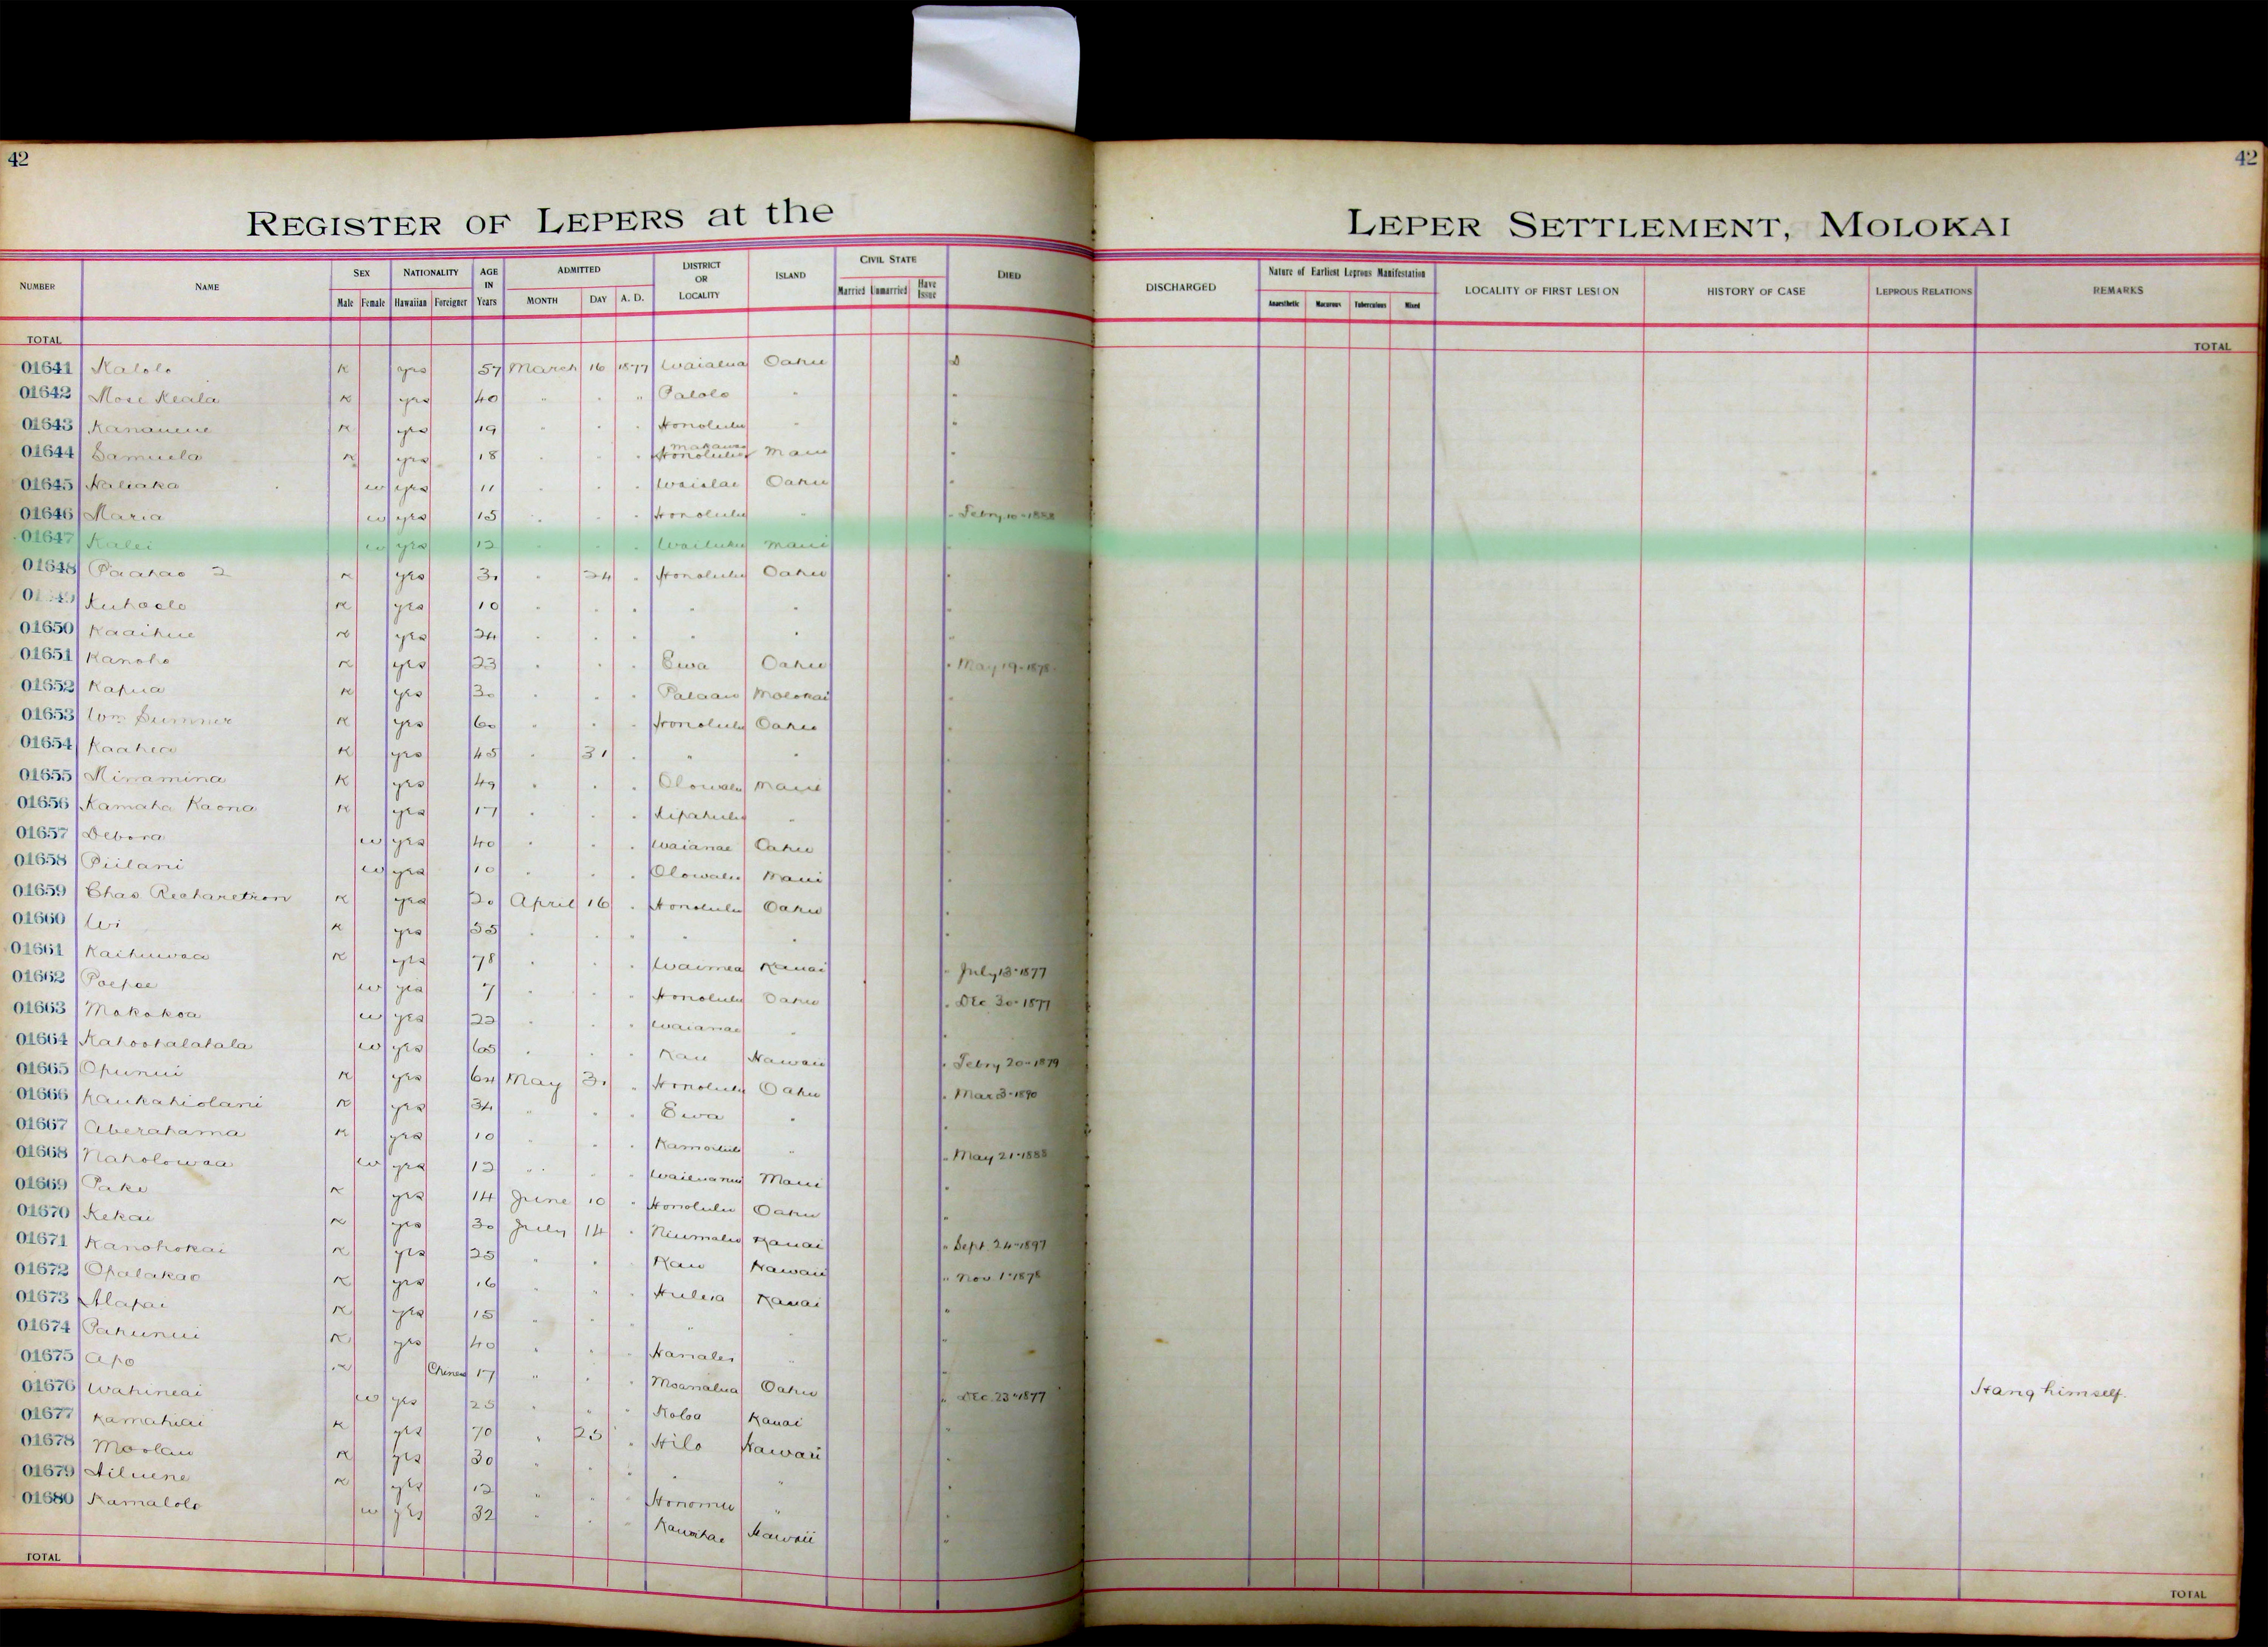 42
42
REGISTER OF LEPERS at the LEPER SETTLEMENT, MOLOKAI
NUMBER NAME SEX Male Female NATIONALITY Hawaiian Foreigner AGE IN Years ADMITTED MONTH DAY A. D. DISTRICT OR LOCALITY ISLAND CIVIL STATE Married Unmarried Have Issue DIED DISCHARGED Nature of Earliest Leprous Manifestation Anaesthetic Macurous Tuberculous Mixed LOCALITY OF FIRST LESION HISTORY OF CASE LEPROUS RELATIONS REMARKS
TOTAL TOTAL
01641 Kalolo K yes 57 March 16 1877 Waialua Oahu D
01642 Mose Keala K yes 40 " " " Palolo " "
01643 Kananene K yes 19 " " " Honolulu " "
01644 Samuela K yes 18 " " " Makawao Honolulu Maui "
01645 Naliaka w yes 11 " " " Waialae Oahu "
01646 Maria w yes 15 " " " Honolulu " " Febry 10-1888
01647 Kalei w yes 12 " " " Wailuku Maui "
01648 Paahao 2 K yes 30 " 24 " Honolulu Oahu "
Kuhaelo K yes 10 " " " " " "
01650 Kaaihue K yes 24 " " " " " "
01651 Kanoho K yes 23 " " " Ewa Oahu " May 19-1878
01652 Kapua K yes 30 " " " Palaau Molokai "
01653 Wm Sumner K yes 60 " " " Honolulu Oahu "
01654 Kaahea K yes 45 " 31 " " " "
01655 Minamina K yes 49 " " " Olowalu Maui "
01656 Kamaha Kaona K yes 17 " " " Kipahulu " "
01657 Debora w yes 40 " " " Waianae Oahu "
01658 Piilani w yes 10 " " " Olowalu Maui "
01659 Chas Richardson K yes 20 April 16 " Honolulu Oahu "
01660 Wi K yes 35 " " " " " "
01661 Kaihuwaa K yes 78 " " " Waimea Kauai " July 13-1877
01662 Poepoe w yes 7 " " " Honolulu Oahu " Dec 30-1877
01663 Makakoa w yes 22 " " " Waianae " "
01664 Kahoohalahala w yes 65 " " " Kau Hawaii " Febry 20-1879
01665 Opunui K yes 64 May 31 " Honolulu Oahu " Mar 3-1890
01666 Kaukahiolani K yes 34 " " " Ewa " "
01667 Aberahama K yes 10 " " " Kamoiliili " " May 21-1888
01668 Naholowaa w yes 12 " " " Wailuanui Maui "
01669 Pake K yes 14 June 10 " Honolulu Oahu "
01670 Kekai K yes 30 July 14 " Niumalu Kauai " Sept. 24-1897
01671 Kanohokai K yes 25 " " " Kau Hawaii " Nov 1-1878
01672 Opalakao K yes 16 " " " Huleia Kauai "
01673 Alapai K yes 15 " " " " " "
01674 Pahunui K yes 40 " " " Hanalei " "
01675 Apo K Chinese 17 " " " Moanalua Oahu " Dec. 23-1877 Hang himself.
01676 Wahineai w yes 25 " " " Koloa Kauai "
01677 Kamahiai K yes 70 " 25 " Hilo Hawaii "
01678 Moolau K yes 30 " " " " " "
01679 Hiluene K yes 12 " " " Honomu " "
01680 Kamalolo w yes 32 " " " Kawaihae Hawaii "
TOTAL TOTAL